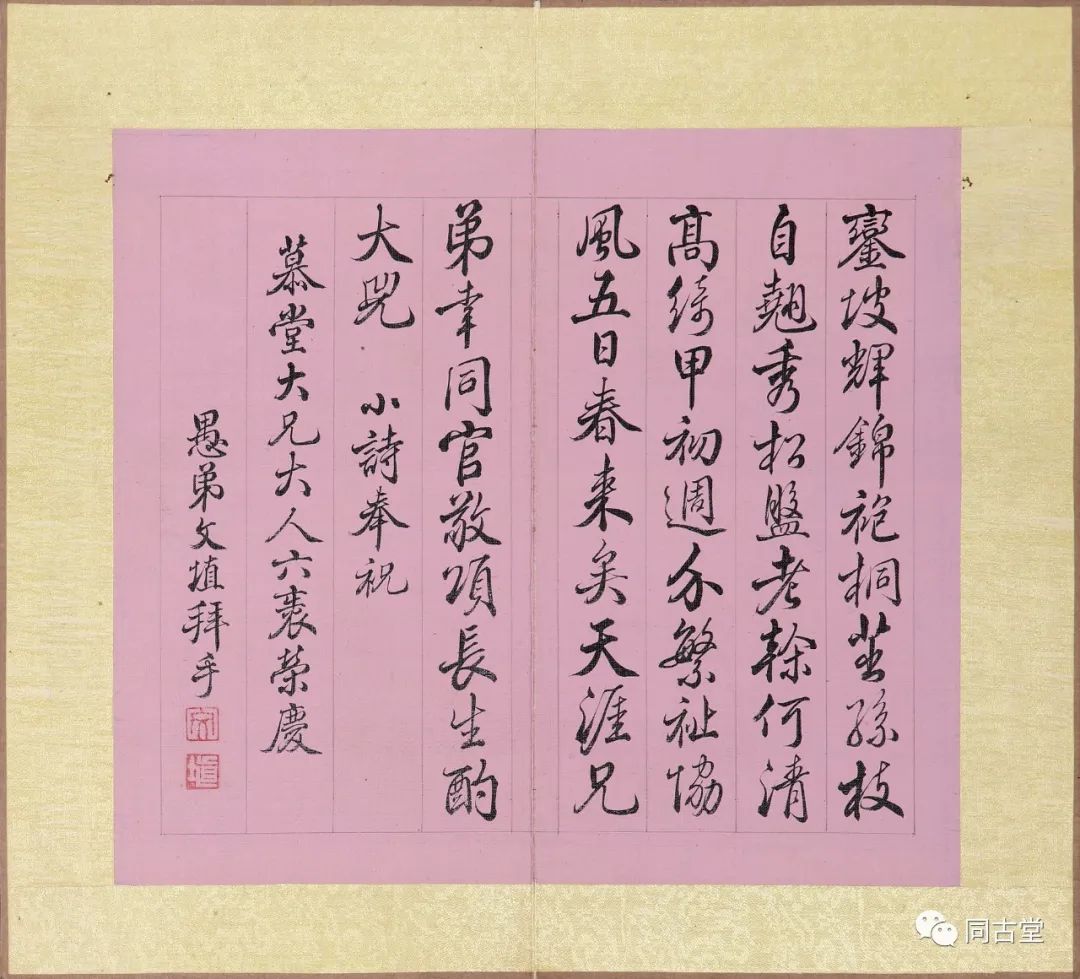 鑾坡輝錦袍桐茁孫枝
自翹秀松盤老榦何清
高綺甲初週介繁祉協
風五日春来矣天涯兄
弟幸同官敬頌長生酌
大兕 小詩奉祝
慕堂大兄大人六袠榮慶
愚弟文埴拜手
文
埴
同古堂